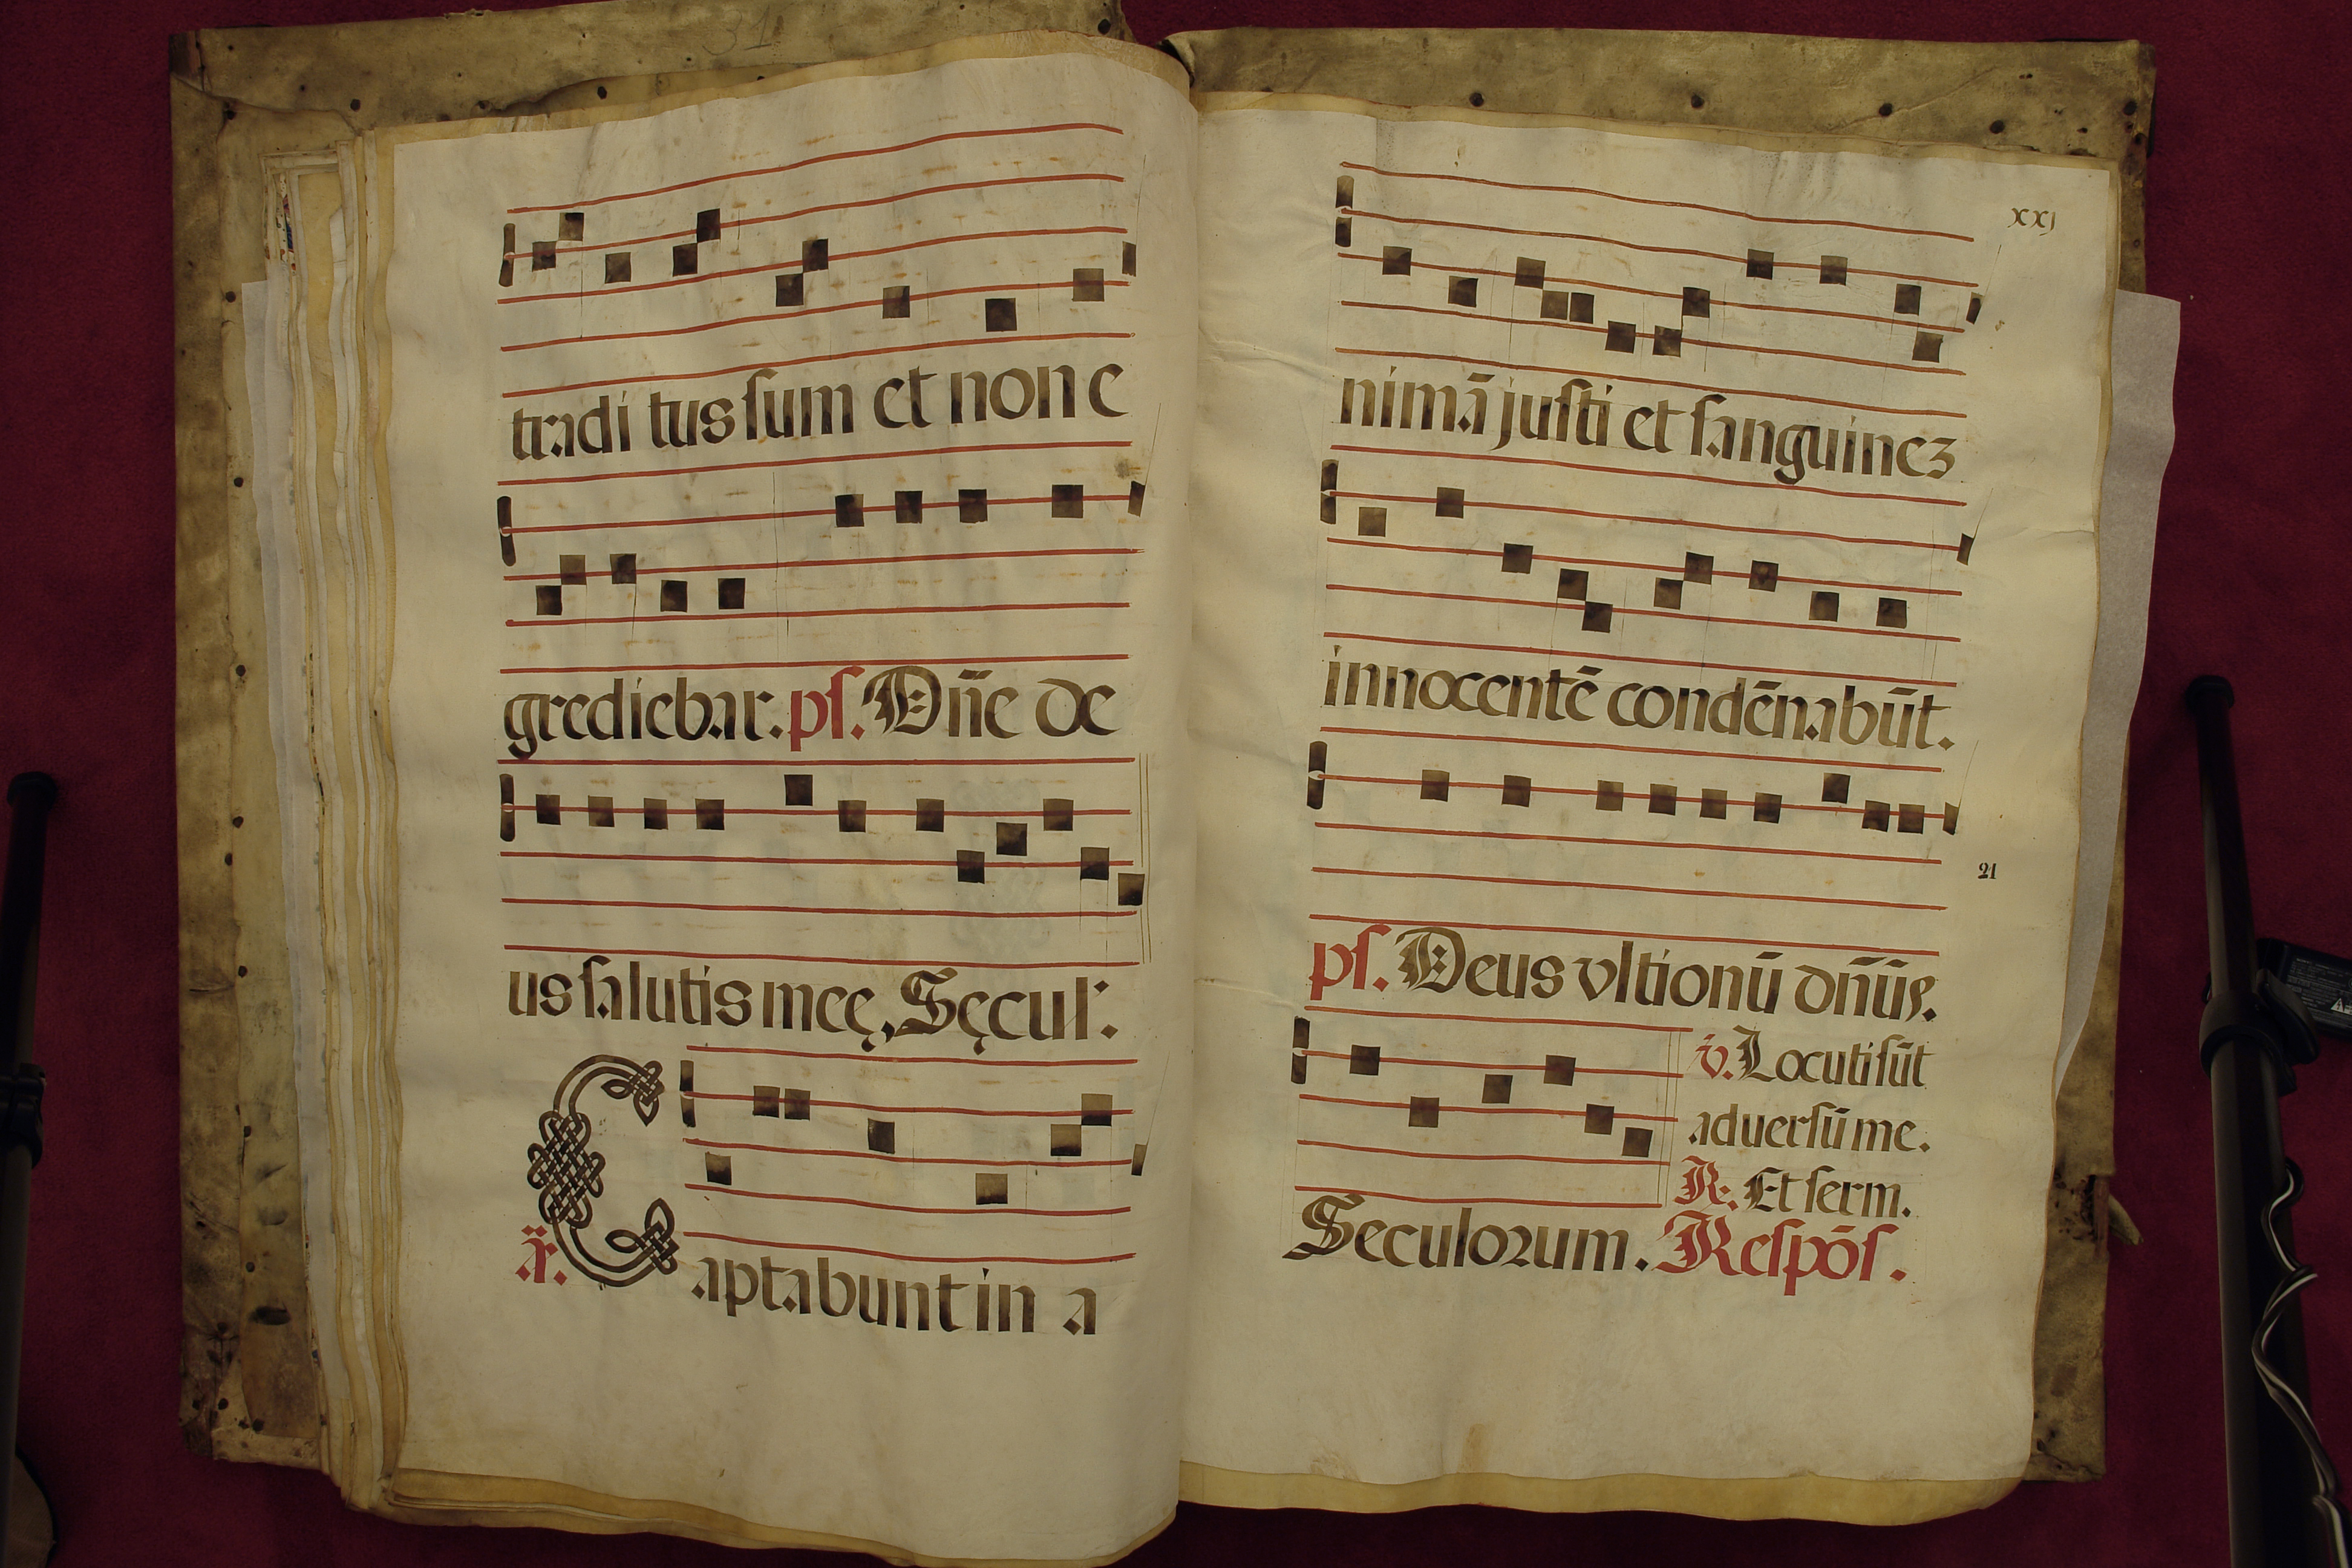 31
tradi tus sum et non e
grediebar. ps. Dñe de
us salutis meę. Sęcul:
añ. Captabunt in a
xxj
nimā justi et sanguinez
innocentē condēnabūt.
21
ps. Deus vltionū dñūs.
v. Locuti sūt
aduersū me.
R. Et serm.
Seculorum. Respōs.